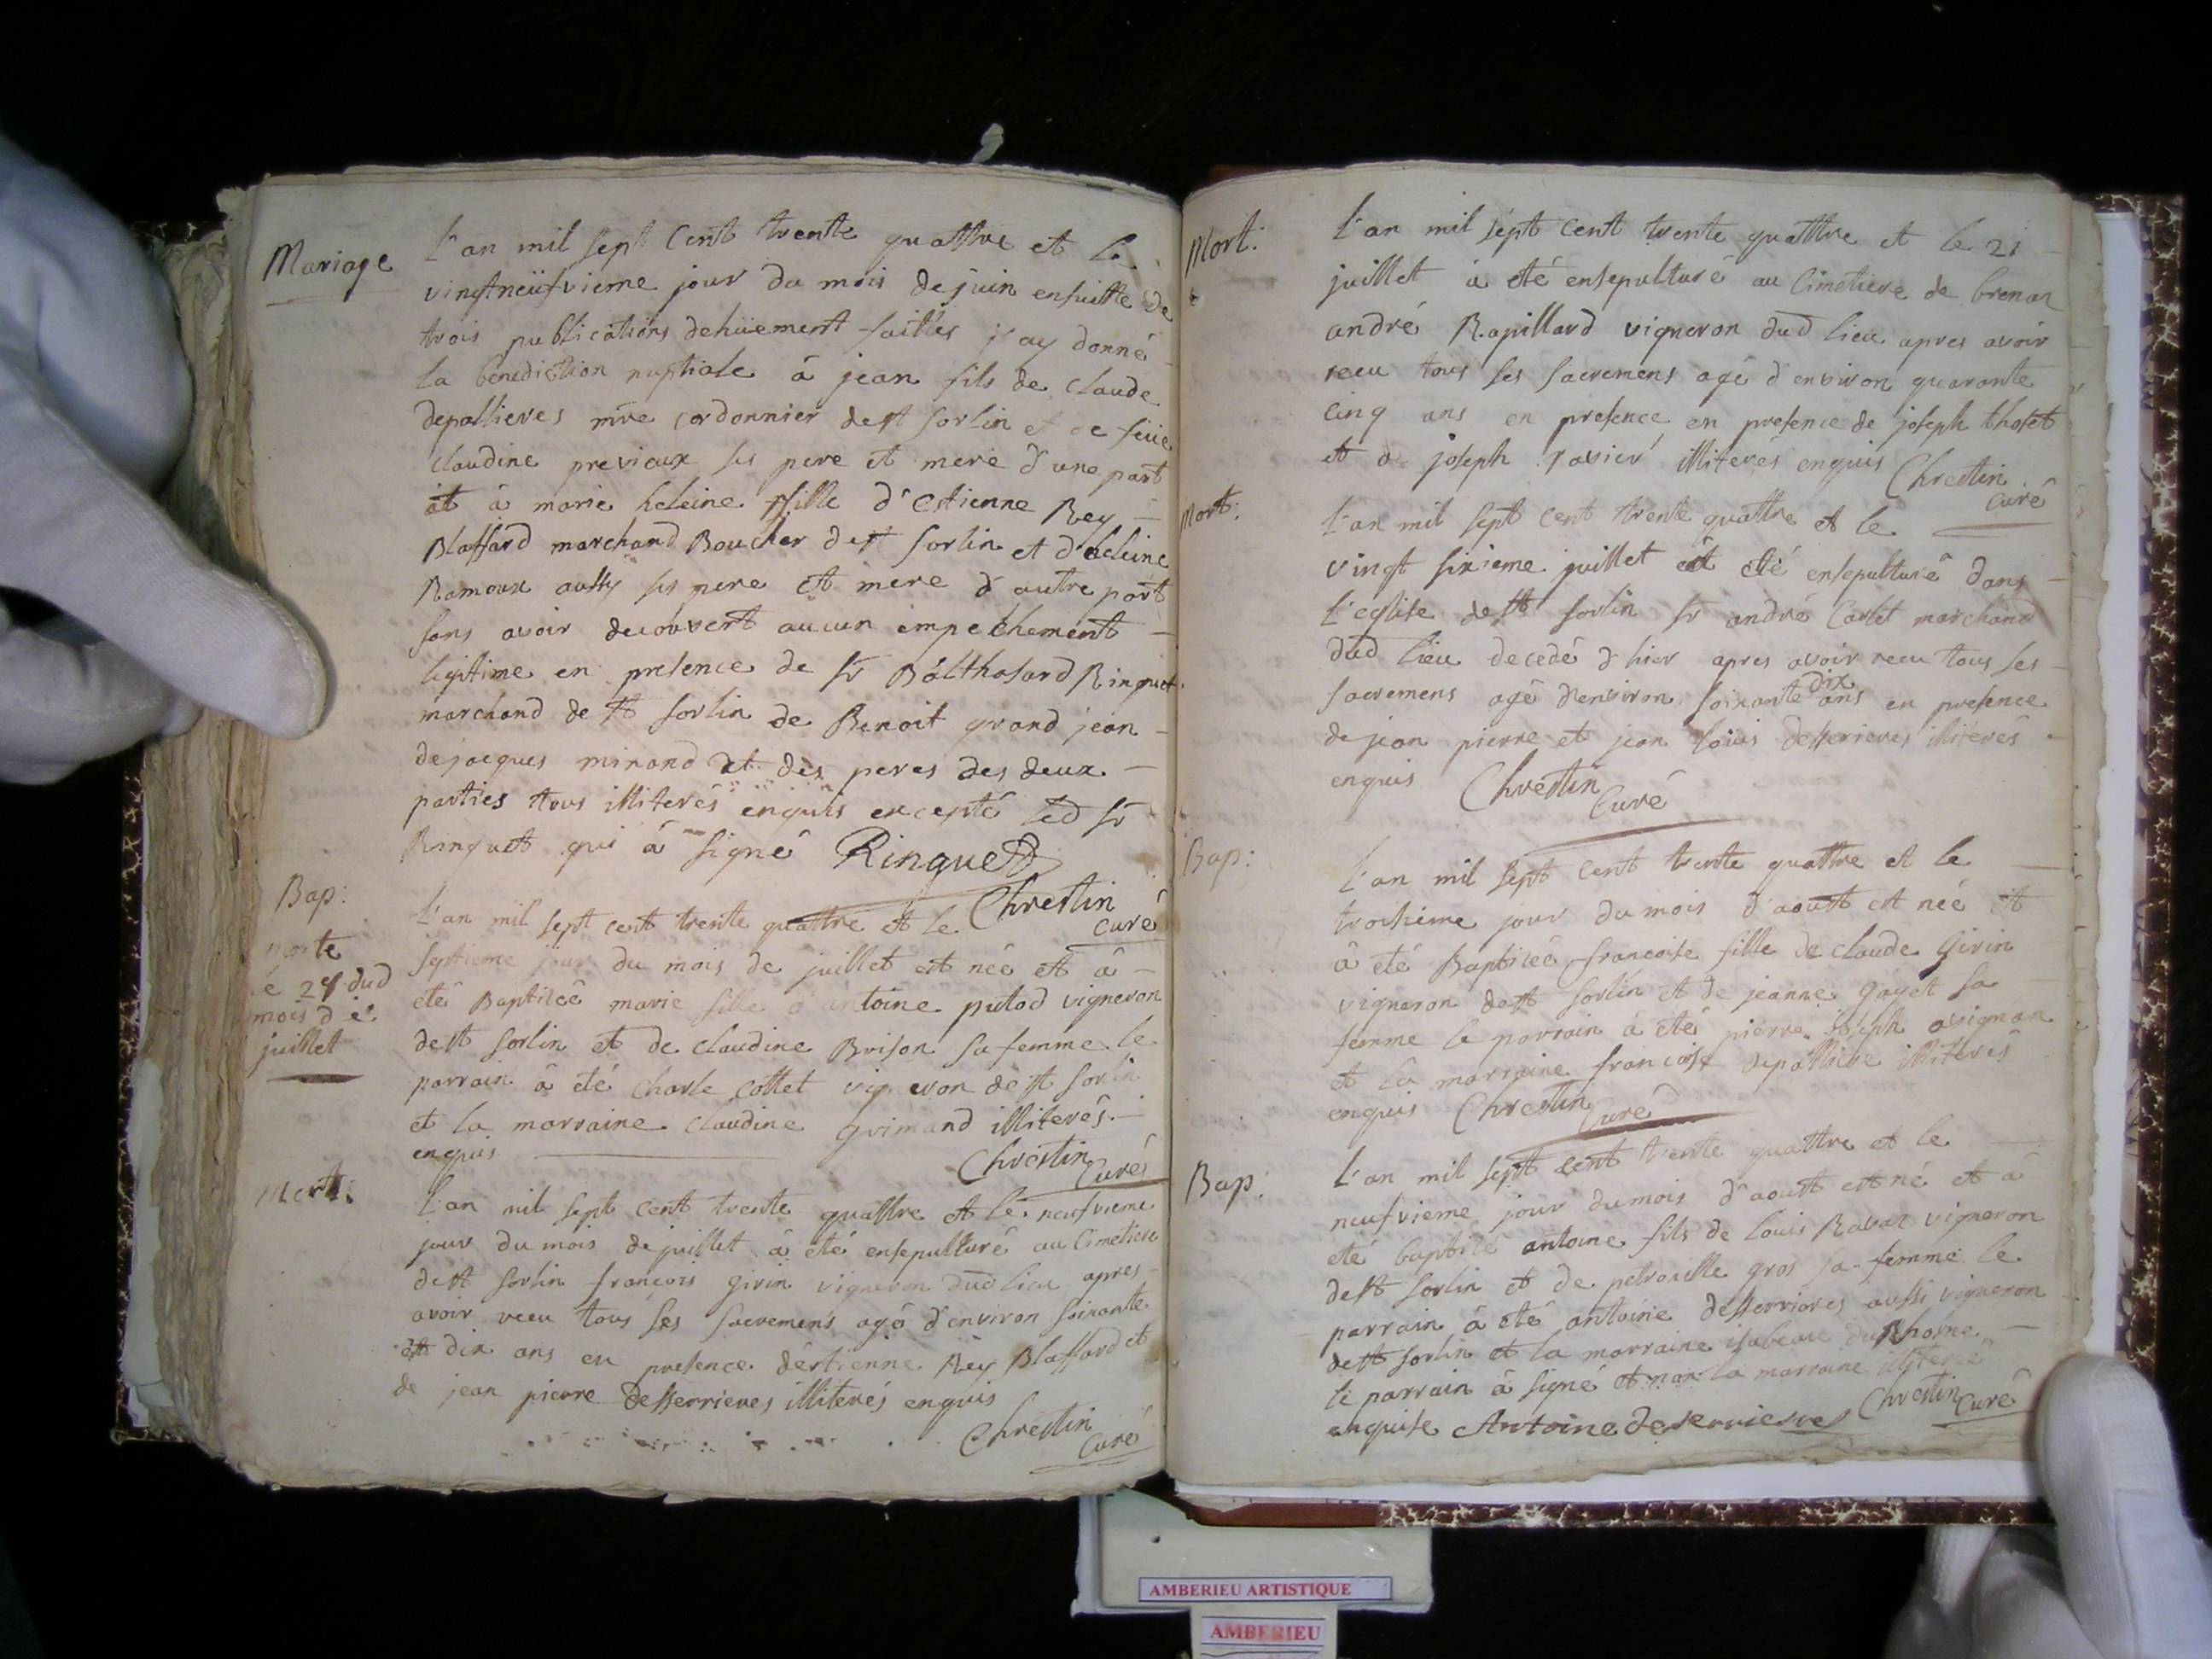 Mariage
L'an mil sept cent trente quattre et le
vingtneufvieme jour du mois de juin ensuitte de
trois publications dehüement faittes j'ay donné
la benediction nuptiale à jean fils de claude
depallieres mre cordonnier de st sorlin et de feüe
claudine previeux ses pere et mere d'une part
et à marie heleine fille d'Estienne Rey
Blaffard marchand Boucher de st sorlin et d'heleine
Ramoux aussy ses pere et mere d'autre part
sans avoir decouvert aucun empechement
legitime en presence de sr Balthasard Ringuet
marchand de st sorlin de Benoit grand jean
de jacques minand et des peres des deux
parties tous illiterés enquis excepté led sr
Ringuet qui à signé Ringuet
Chrestin
curé
Bap:
morte
le 29 dud
mois de
juillet
L'an mil sept cent trente quattre et le
septieme jour du mois de juillet est née et à
eté Baptisée marie fille d'antoine putod vigneron
de st sorlin et de claudine Brison sa femme le
parrain à eté Charle Cottet vigneron de st sorlin
et la marraine claudine Grimand illiterés
enquis
Chrestin
Curé
Mort:
L'an mil sept cent trente quattre et le neufvieme
jour du mois de juillet à eté ensepulturé au cimetiere
de st sorlin francois Girin vigneron dud lieu apres
avoir receu tous ses sacremens agé d'environ soixante
et dix ans en presence d'estienne Rey Blaffard et
de jean pierre desserrieres illiterés enquis
Chrestin
Curé
Mort:
L'an mil sept cent trente quattre et le 21
juillet à eté ensepulturé au Cimetiere de brenaz
andré Rapillard vigneron dud lieu apres avoir
receu tous ses sacremens agé d'environ quarante
cinq ans en presence en presence de joseph thoset
et de joseph ravier illiterés enquis
Chrestin
Curé
Mort:
L'an mil sept cent trente quattre et le
vingt sixieme juillet à eté ensepulturé dans
l'eglise de st sorlin sr andré Carlet marchand
dud lieu decedé d'hier apres avoir receu tous ses
sacremens agé d'environ soixante dix ans en presence
de jean pierre et jean louis desserrieres illiterés
enquis Chrestin
Curé
Bap:
L'an mil sept cent trente quattre et le
troisieme jour du mois d'aoust est née et
à eté Baptisée francoise fille de claude Girin
vigneron de st sorlin et de jeanne Gayet sa
femme le parrain à eté pierre joseph avignon
et la marraine francoise depalliere illiterés
enquis Chrestin
Curé
Bap:
L'an mil sept cent trente quattre et le
neufvieme jour du mois d'aoust est né et à
eté baptisé antoine fils de louis Ravaz vigneron
de st sorlin et de petronille gros sa femme le
parrain à eté antoine desserrieres aussi vigneron
de st sorlin et la marraine isabeau du Rhosne
le parrain à signé et non la marraine illiterée
enquise Antoine deserriesres
Chrestin
Curé
AMBERIEU ARTISTIQUE
AMBERIEU